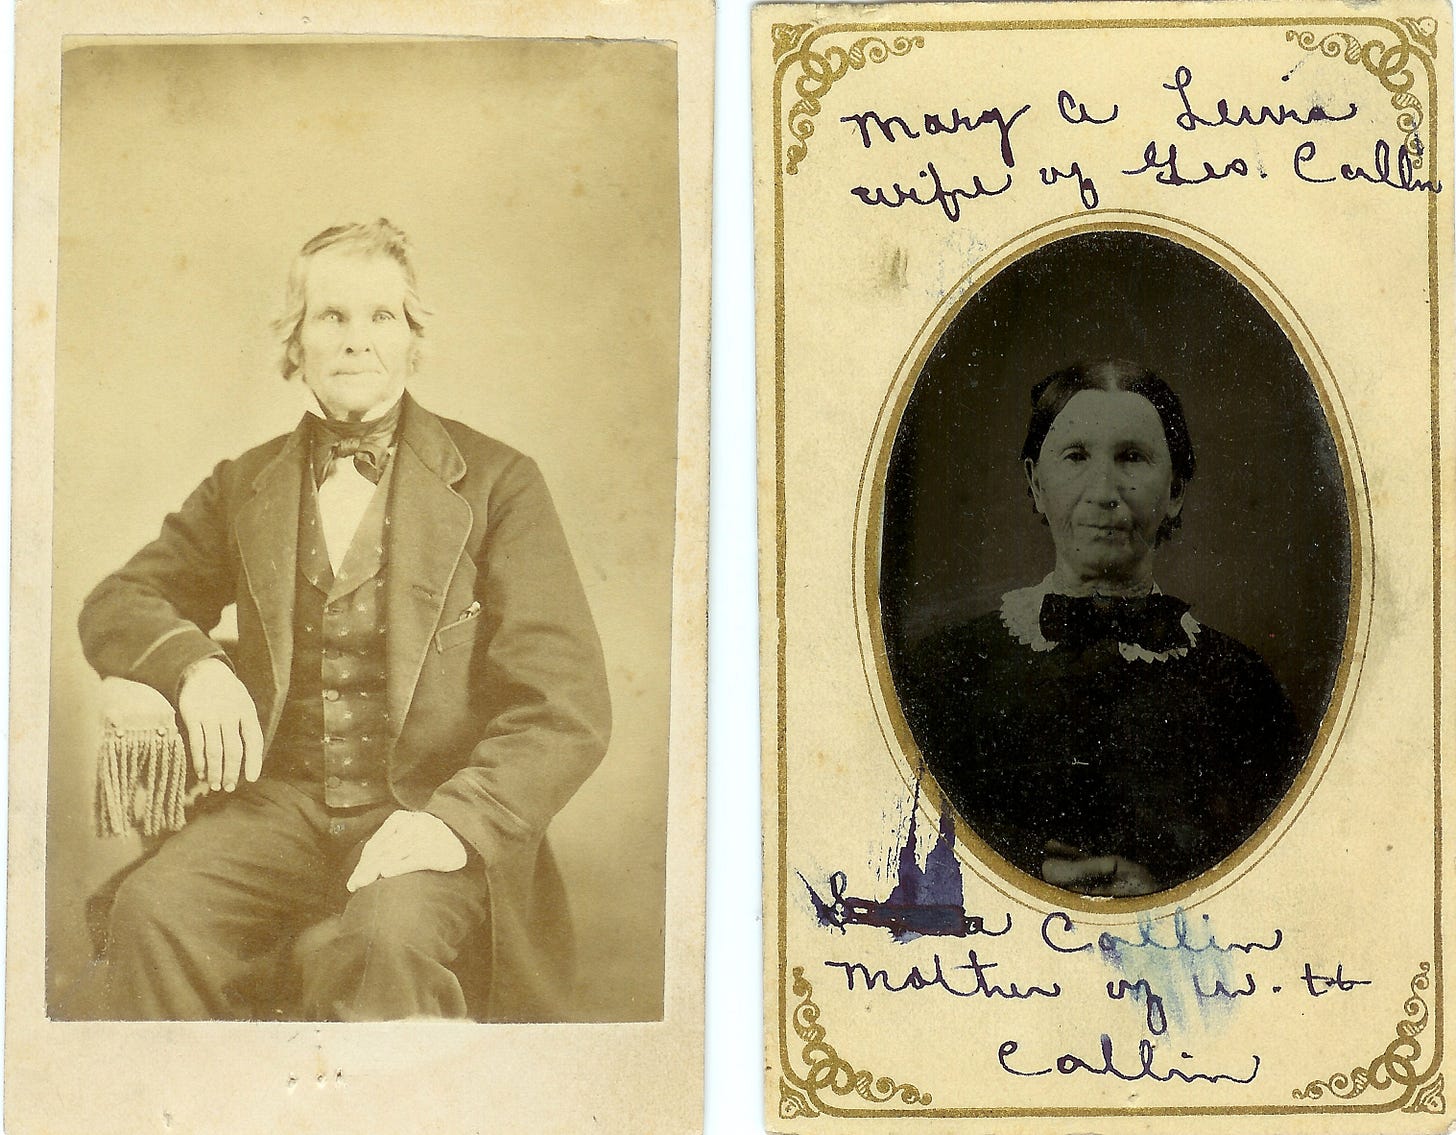 Mary A Lewis
wife of Geo. Callin
Callin
Mother of W.
Callin